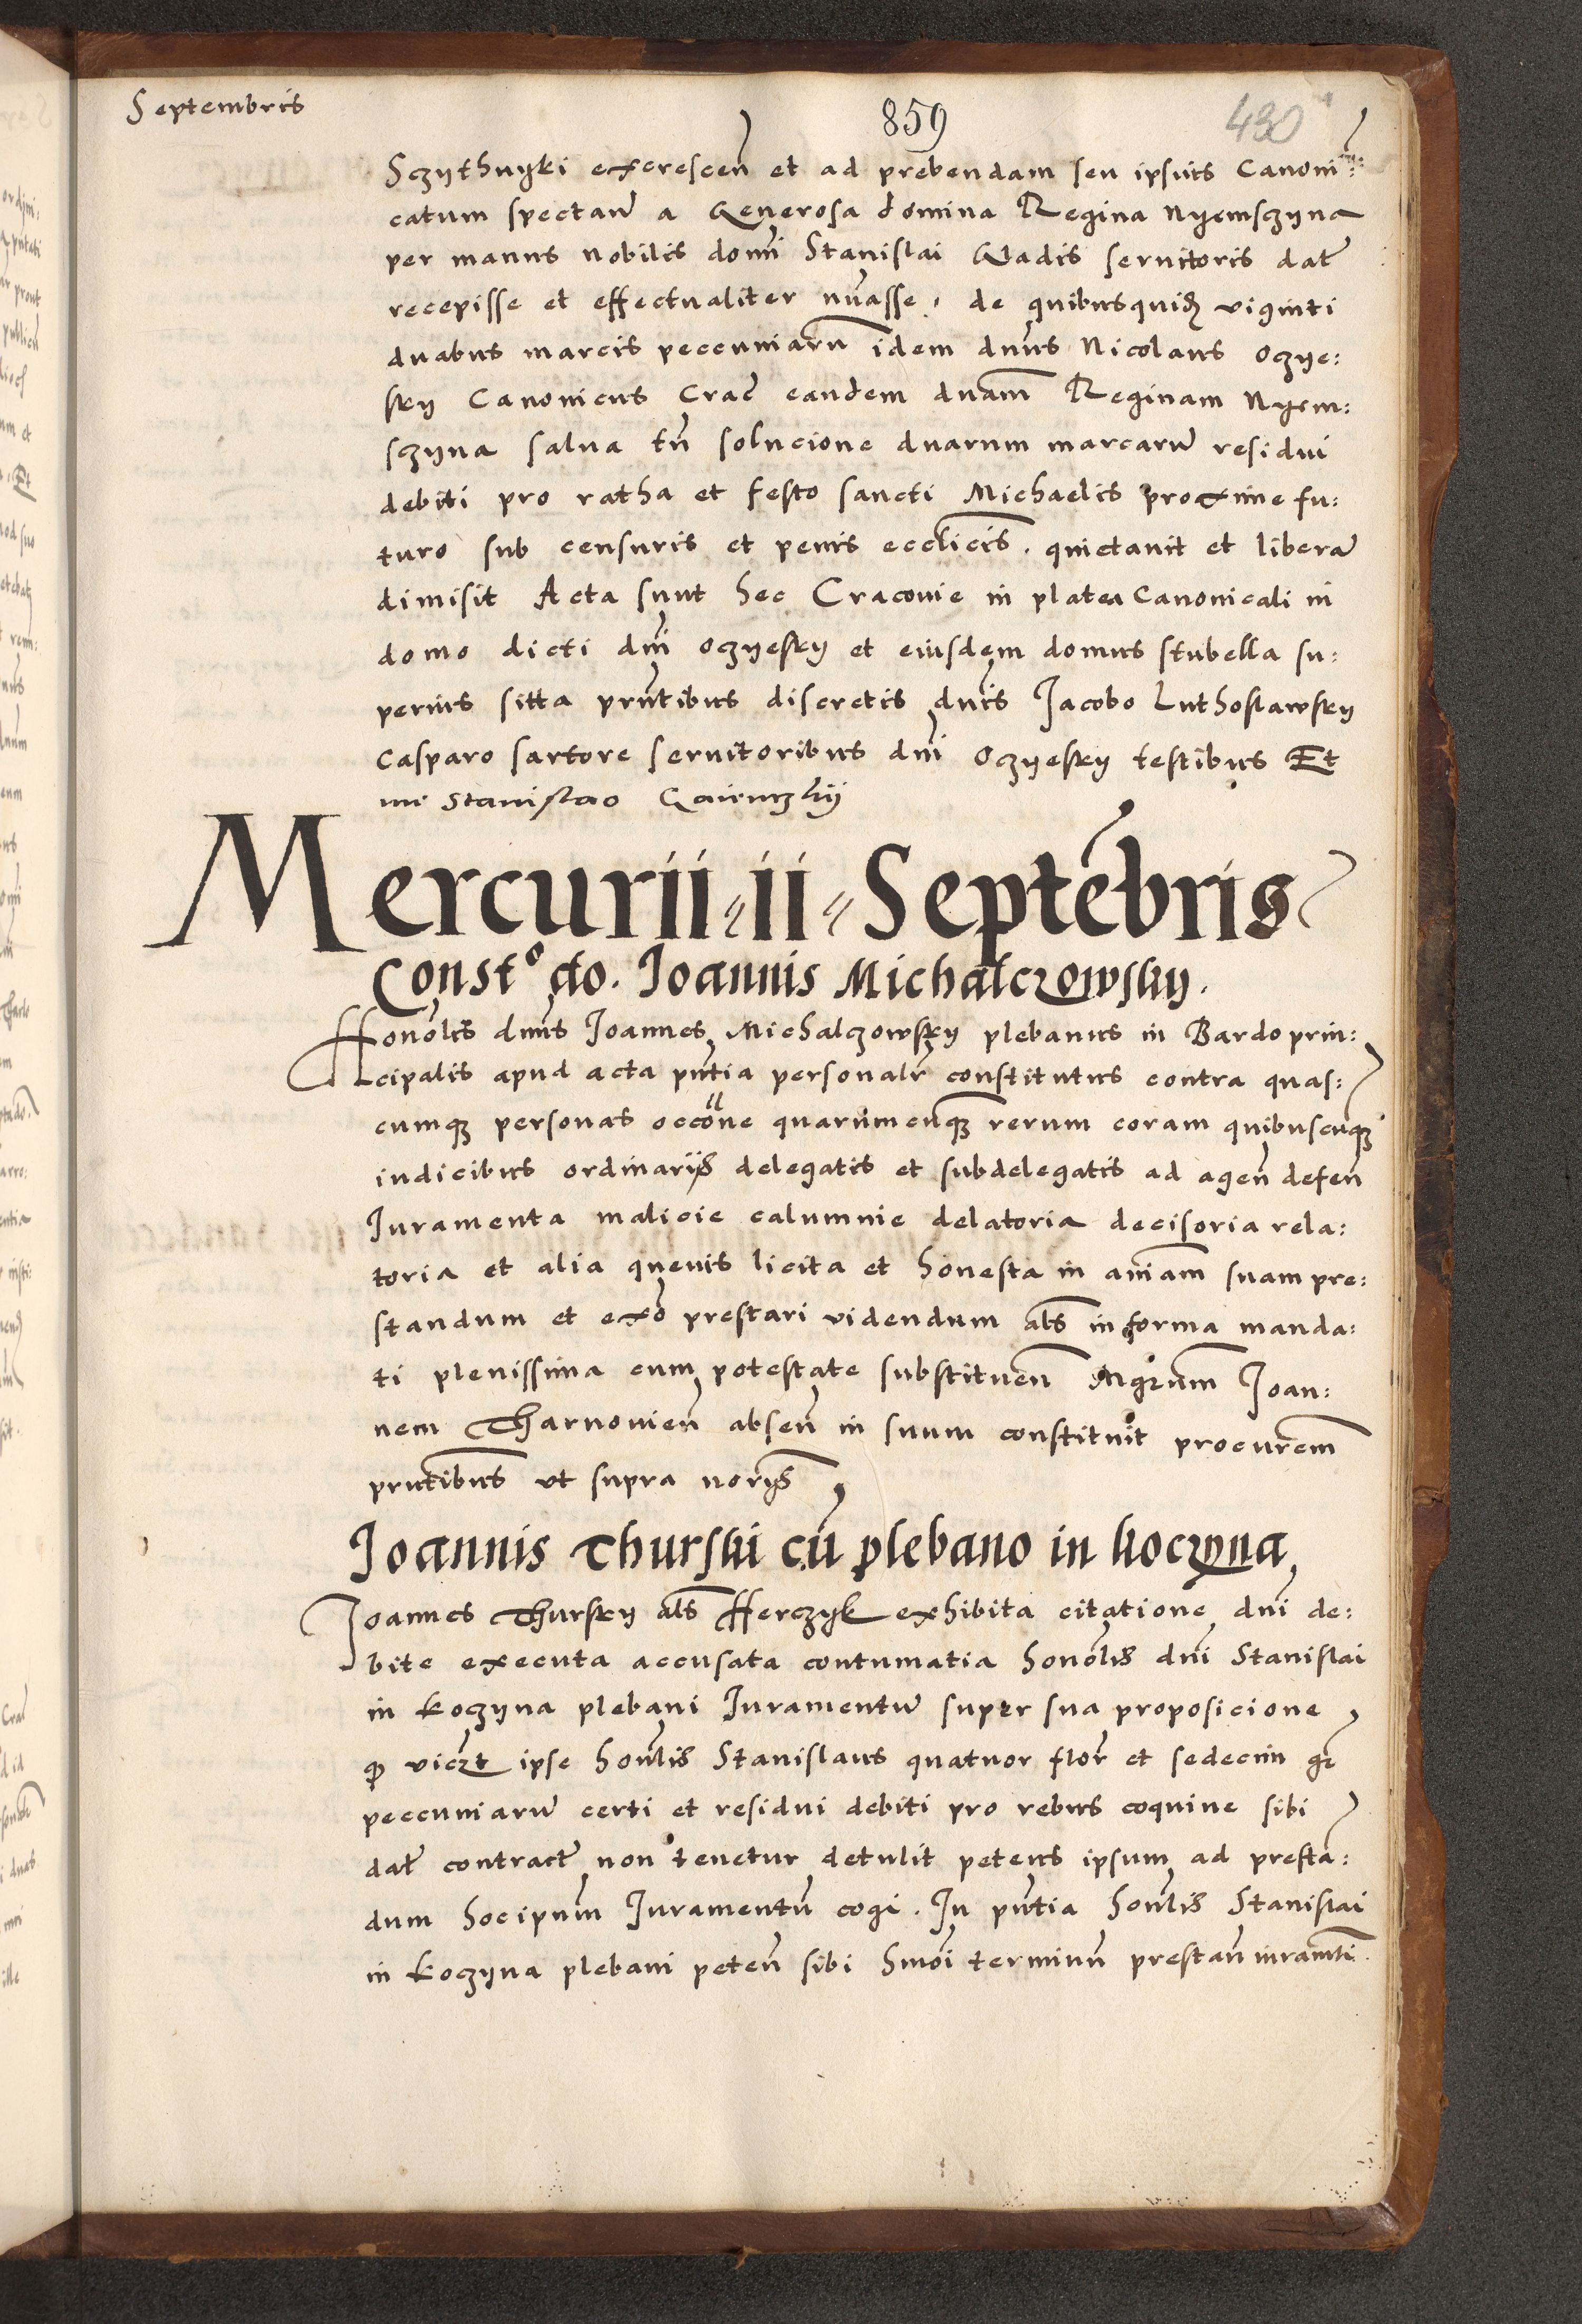 Septembris
859
430
Sczythnyki excrescen̄ et ad prebendam seu ipsius Canoni:
catum spectan̄ a Generosa domina Regina Nyemsczyna
per manus nobilis domi Stanislai Gadis servitoris dat̄
recepisse et effectualiter nūasse, de quibusquid̄ viginti
duabus marcis peccuniarū idem dn̄us Nicolaus Oczye:
sky Canonicus Crac̄ eandem dnām Reginam Nyem:
sczyna salva tn̄ solucione duarum marcarū residui
debiti pro ratha et festo sancti Michaelis proxime fu:
turo sub censuris et penis eccl̄icis. quietavit et liberā
dimisit Acta sunt hec Cracovie in platea Canonicali in
domo dicti dnī Oczyesky et eiusdem domus stubella su:
perius sitta prn̄tibus discretis dnīs Jacobo Luthoslawsky
Casparo sartore servitoribus dnī Oczyesky testibus Et
me Stanislao
Mercurii ii Septēbris
Constº do. Joannis Michalczowsky.
Honōlis dnūs Joannes Michalczowsky plebanus in Bardo prin:
cipalis apud acta pn̄tia personalr̄ constitutus contra quas:
cumqꝫ personas occōne quarumcūqꝫ rerum coram quibuscūqꝫ
iudicibus ordinarijs delegatis et subdelegatis ad agen̄ defen̄
Juramenta malicie calumnie delatoria decisoria rela:
toria et alia quevis licita et honesta in aniām suam pre:
standum et exo prestari videndum al̄s in forma manda:
ti plenissima cum potestate substituen̄ Mgrūm Joan:
nem Tharnovien̄ absen̄ in suum constituit procurēm
prn̄tibus ut supra norijs
Joannis Thurski cū plebano in koczyna
Joannes Thursky al̄s Herczyk exhibita citatione dnī de:
bite executa accusata contumatia honōlis dnī Stanislai
in Koczyna plebani Juramentū super sua proposicione
ꝙ viczt ipse honlīs Stanislaus quatuor flor̄ et sedecim gr̄
peccuniarū certi et residui debiti pro rebus coquine sibi
dat̄ contract̄ non tenetur detulit petens ipsum ad prestā:
dum hocipsūm Juramentū cogi. In pn̄tia honlīs Stanislai
in Koczyna plebani peten̄ sibi hmōi terminū prestan̄ iuramti.